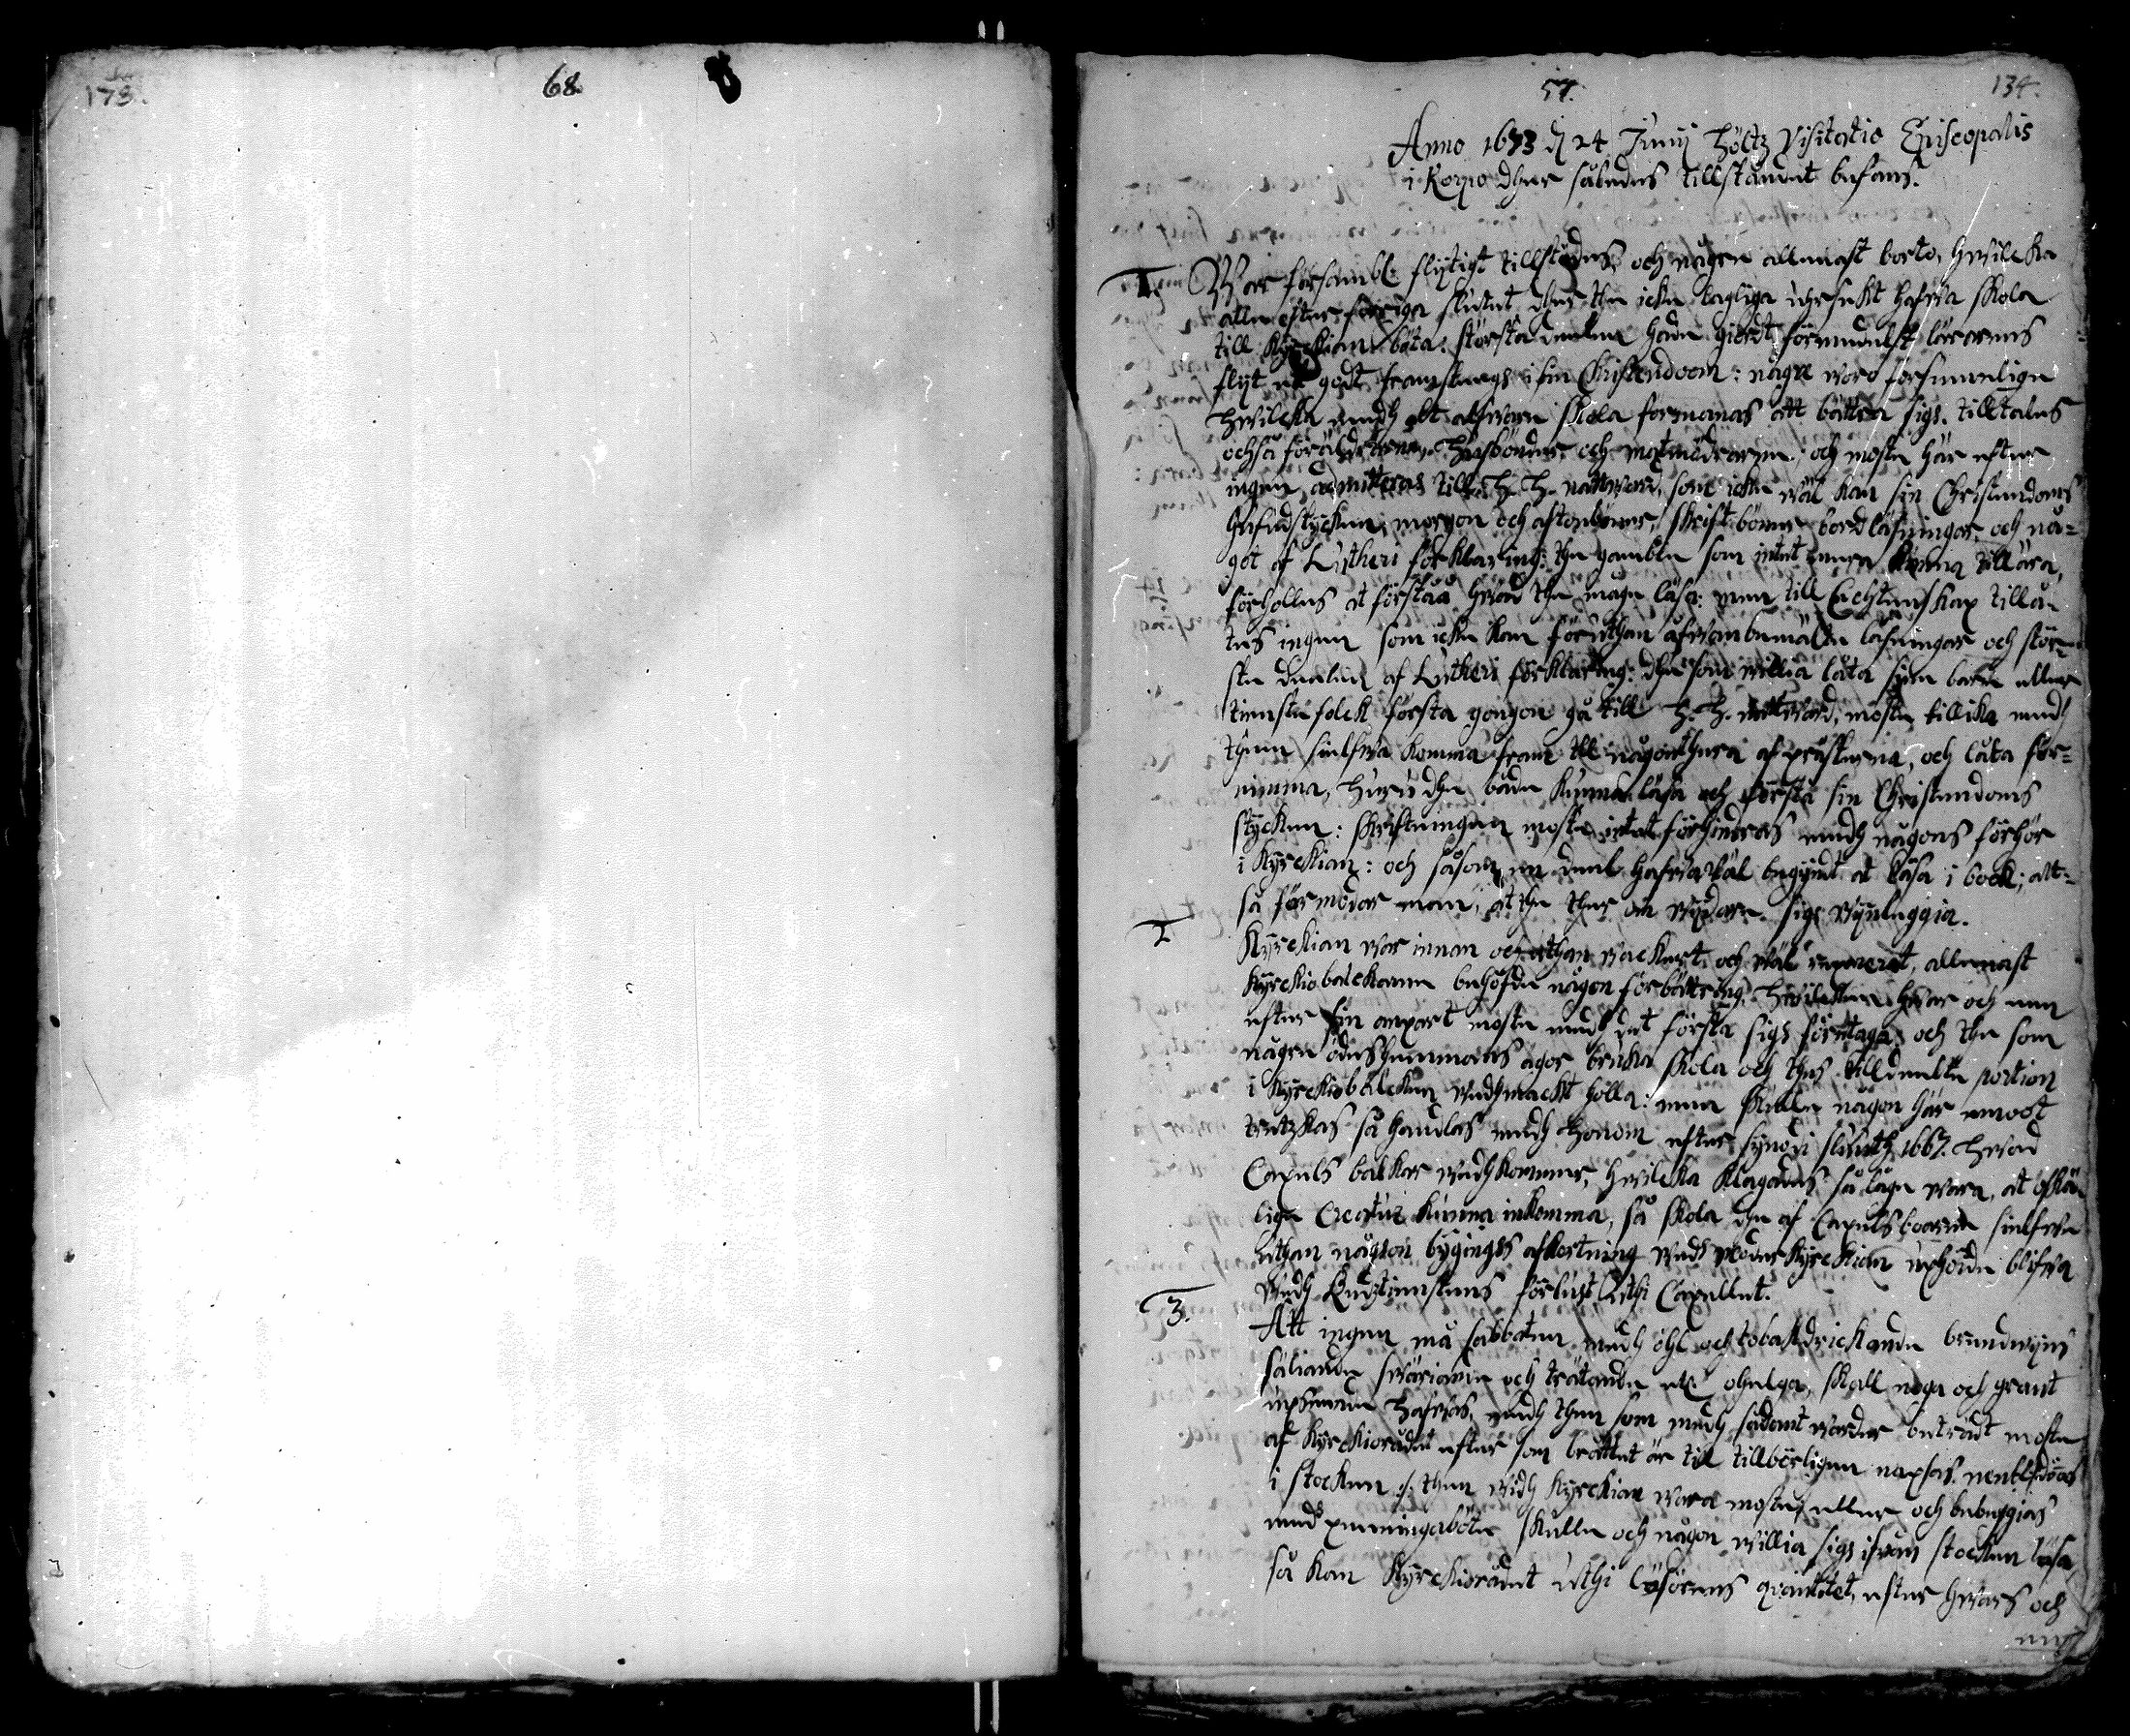 178.
68.
57.
134.
Anno 1673 d 24 Junij höltz Visitatio Episcopalis
i Korpo dher således tillståndet befans.
1. War försambl: flijtigt tillstädes, och någre allenast borto, hwilcka
alle efter förriga slutet, dher the icke laglige uhrsäkt hafwa skola
till Kyrckian böta: största deelen hade giordt förmedelst lärarens
flijt et godt framsteegh i sin Christendoom: någre woro försummelige
hwilcka medh alt alfware skola förmanas att bättra sigh. tilltales
ochså föräldrarne, husbönder och matmödrarne, och moste här efter
ingen admitteras till H. H. nattward, som icke wäl kan sin Christendoms
hufwudstycken, morgon och aftonböner, skrift böner bordläsningar, och nå-
got af Lutheri förklaring: the gamble som intet mera kunna tillära,
förholles at förstå hwad the måge läsa: men till Echtenskap tillå-
tes ingen som icke kan föruthan ofwanbemälte läsningar och stör-
ste deelen af Lutheri förklaring: dhe som willia låta sine barn eller
tienste folck första gongon gå till H. H. nattward, moste tillika medh
them sielfwa komma fram till någonthera af prästerna, och låta för-
nimma, huru dhe både kunna läsa och förstå sin Christendoms
stycken: skriftningen moste intet förhindras medh någons förhör
i Kyrckian: och såsom en deel hafwa wäl begynt at läsa i book; alt-
så förmodar man, at the ther om wijdare sigh winleggia.
2 Kyrckian war innan och uthan wackert och wäl reparerat, allenast
Kyrckiobalckarne behöfde någon förbättring, hwilcken hwar och een
efter sin anpart moste medh det första sigh företaga: och the som
någre ödeshemmans ägor bruka skola och thes tilldeelte portion
i Kyrckiobalcken widhmacht holla: men skulle någon här emoot
tredzkas så handlas medh honom efter synodi sluuth 1667. hwad
Capels balkar widhkommer, hwilcka klagades så låge wara, at oskä-
lige Creatur kunna inkomma, så skola dhe af Capelsboarne sielfwe
uthan någhon bygings afkortning widh moder kyrckian uphögde blifwa
widh Gudztienstens förlust uthi Capellet.
3. Att ingen må sabbaten medh öhl och tobakdrickande brendewijns
säliande swäriande och trätande etc. ohelga, skall noga och grant
upseende hafwas, medh then som medh sådant warder beträdt moste
af Kyrckiorådet efter som brottet är till tillbörligen näpsas,
i stocken /: then widh Kyrckian wara moste, eller och beleggias
medh penningaböter skulle och någon willia sigh ifrån stocken lösa,
så kan Kyrckiorådet uthi lösörens qvantitet, efter hwars och
eens